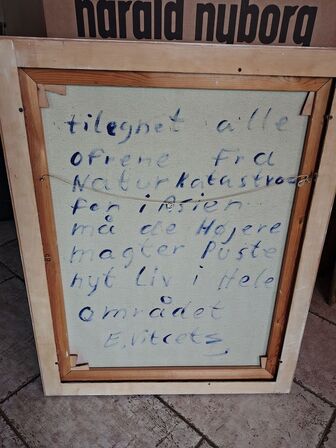 harald nyborg
tilegnet alle
ofrene Fra
Naturkatastro
fen i Asien
må de Højere
magter Puste
nyt Liv i Hele
området
E. Vitcets